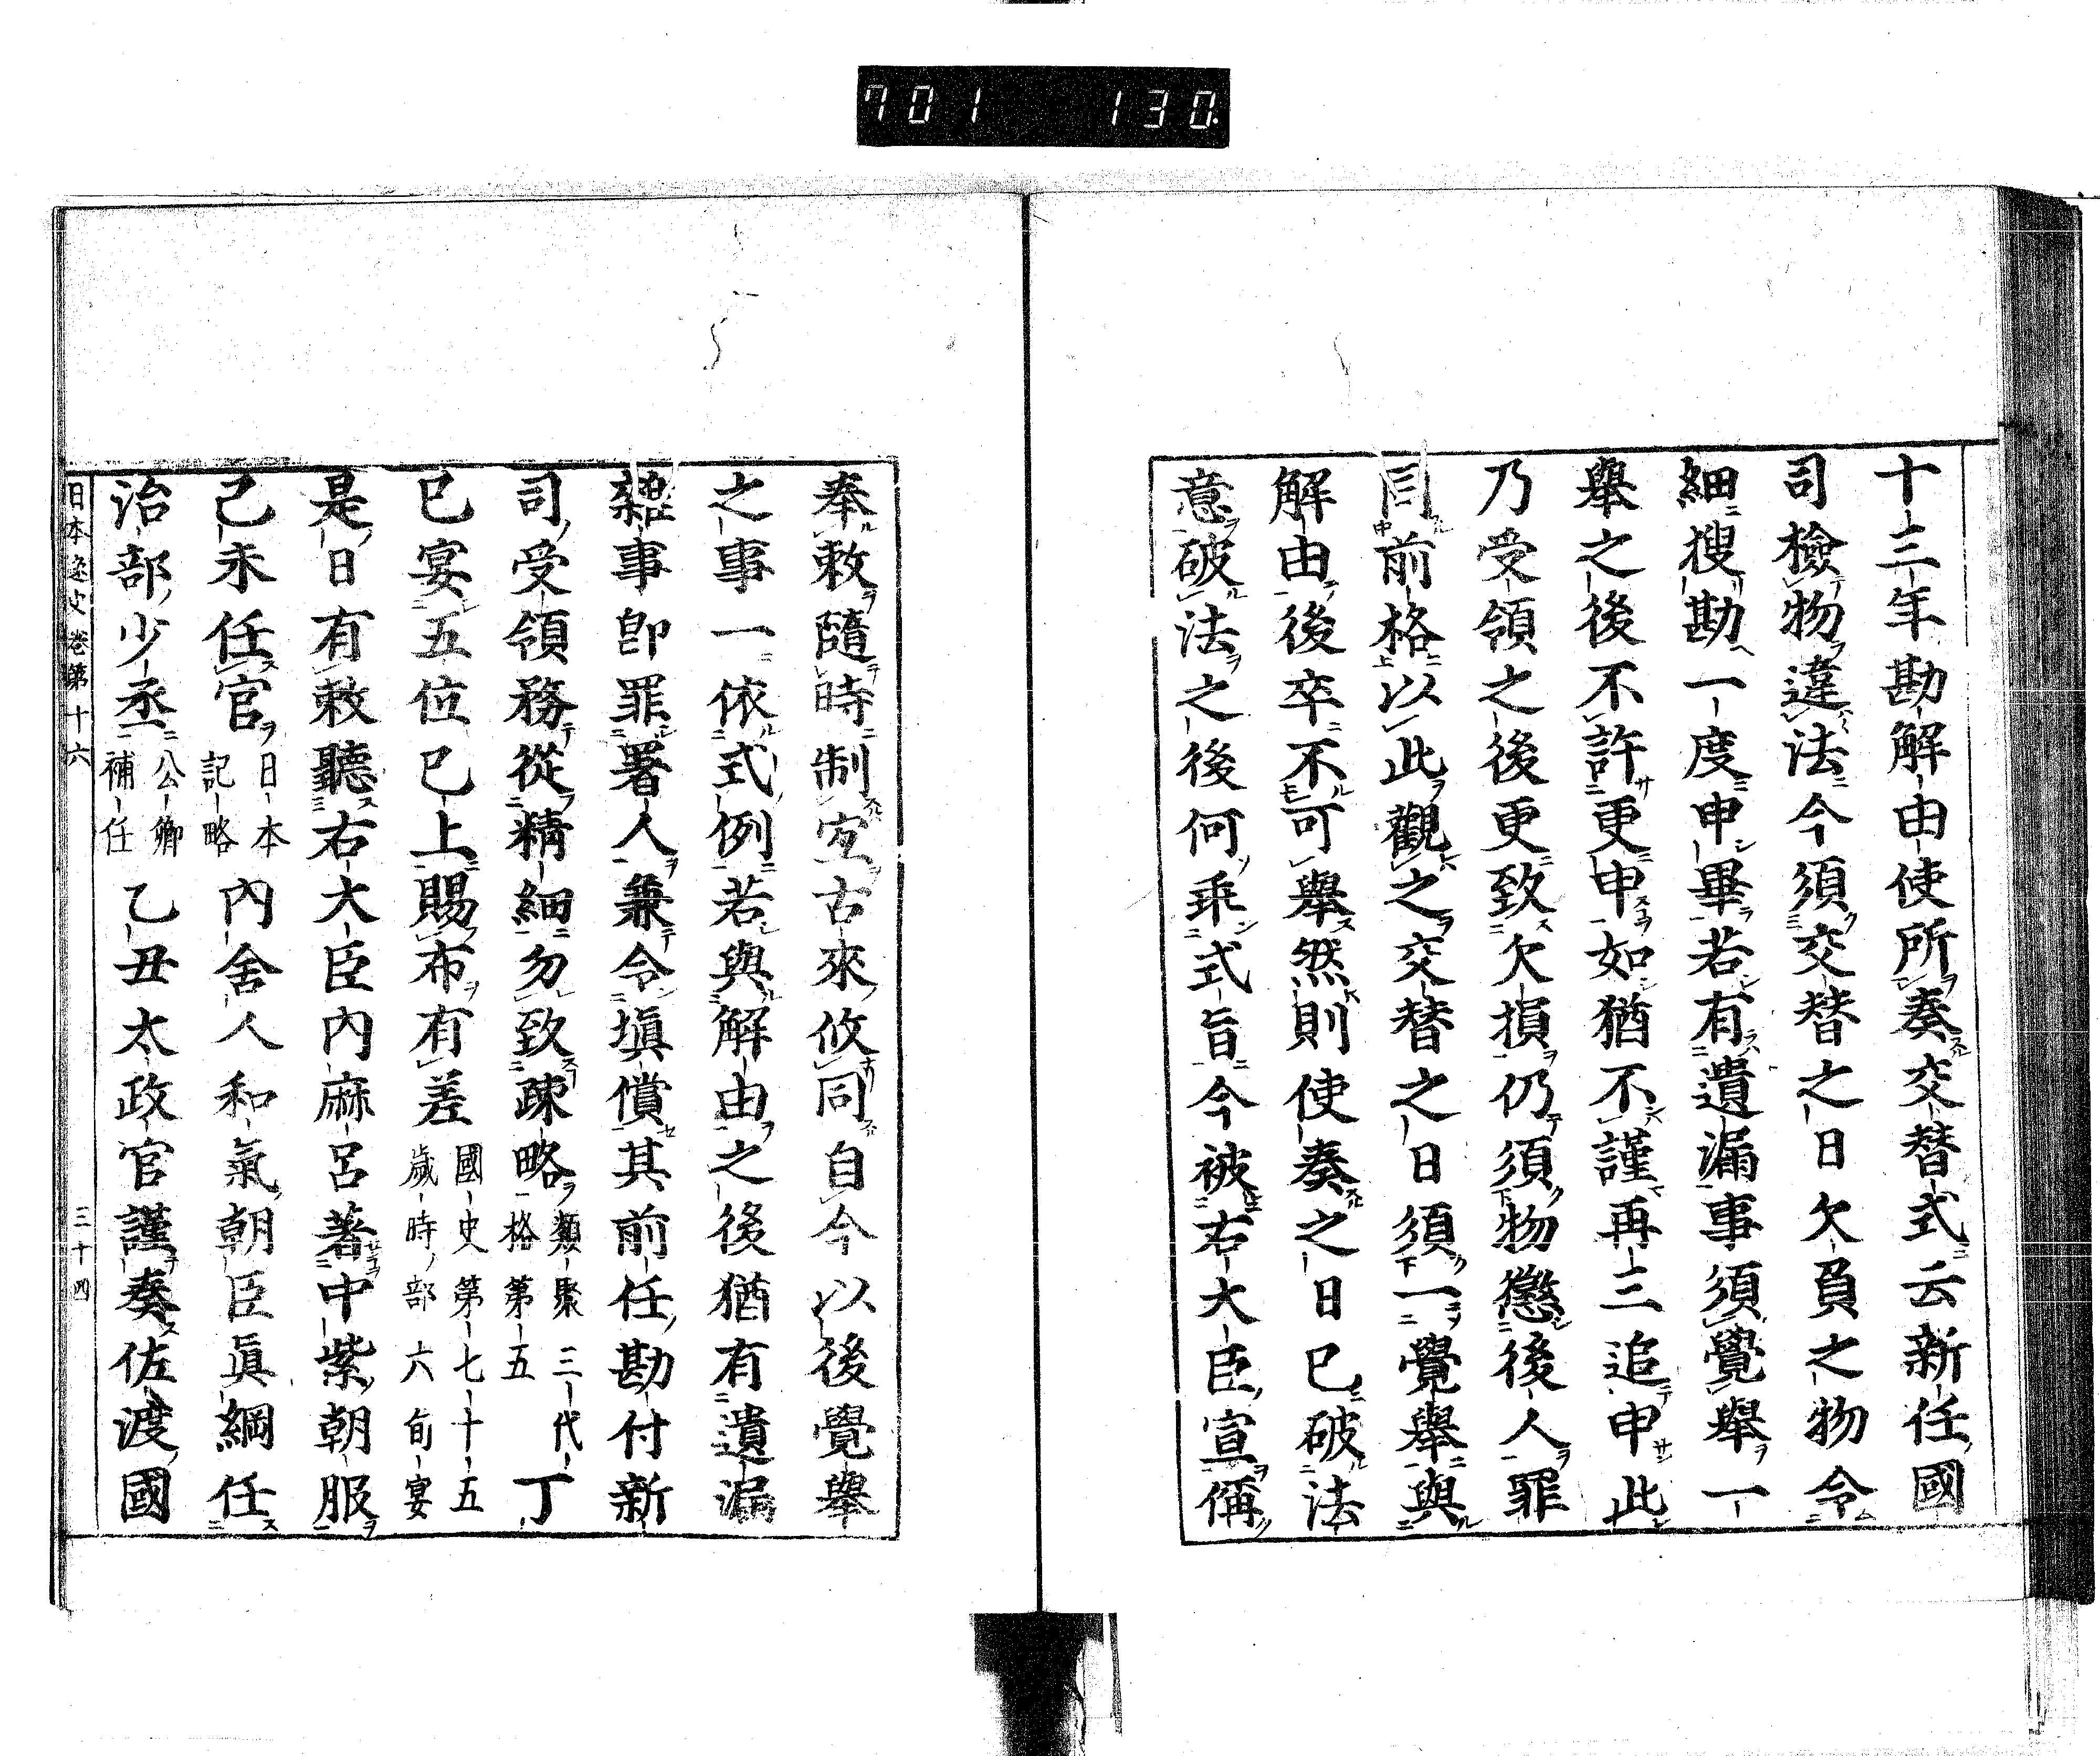 701 130
十三年勘解由使所奏交替式云新任國
司檢物違法今須交替之日欠負之物令
細搜勘一度申畢若有遺漏事須覺舉一
舉之後不許更申如猶不謹再三追申此
乃受領之後更致欠損仍須物懲後人罪
同前格以此觀之交替之日須一覺舉與
解由後卒不可舉然則使奏之日已破法
意破法之後何乖式旨今被右大臣宣偁
奉敕隨時制宜古來攸同自今以後覺舉
之事一依式例若與解由之後猶有遺漏
雜事卽罪署人兼令塡償其前任勘付新
司受領務從精細勿致疎略類聚三代格第五丁
巳宴五位已上賜布有差國史第七十五歲時部六旬宴
是日有敕聽右大臣內麻呂著中紫朝服
己未任官日本記略內舍人和氣朝臣眞綱任
治部少丞公卿補任乙丑太政官謹奏佐渡國
日本逸史卷第十六 三十四